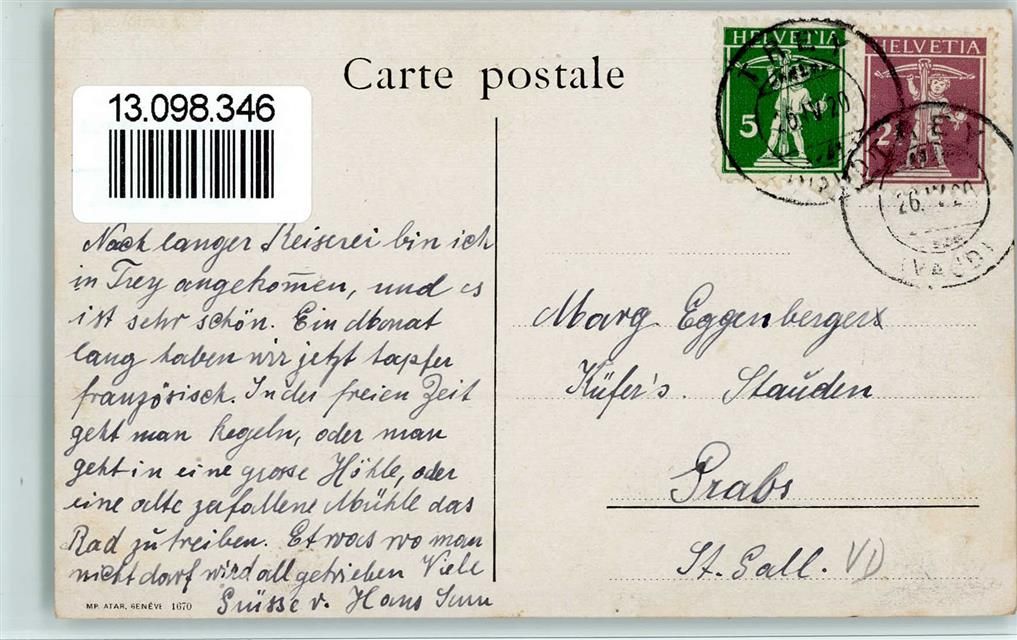 Carte postale
13.098.346
HELVETIA
5
HELVETIA
TREY
26.IV.20
(VAUD)
Nach langer Reiserei bin ich
in Trey angekom̄en, und es
ist sehr schön. Ein Monat
lang haben wir jetzt tapfer
französisch. In der freien Zeit
geht man kegeln, oder man
geht in eine grosse Höhle, oder
eine alte zafallene Mühle das
Rad zu treiben. Etwas wo man
nicht darf wird all getrieben Viele
Grüsse v. Hans
Marg Eggenberger
Küfer's. Stauden
Grabs
St. Gall. VD
MP. ATAR, GENÈVE 1670